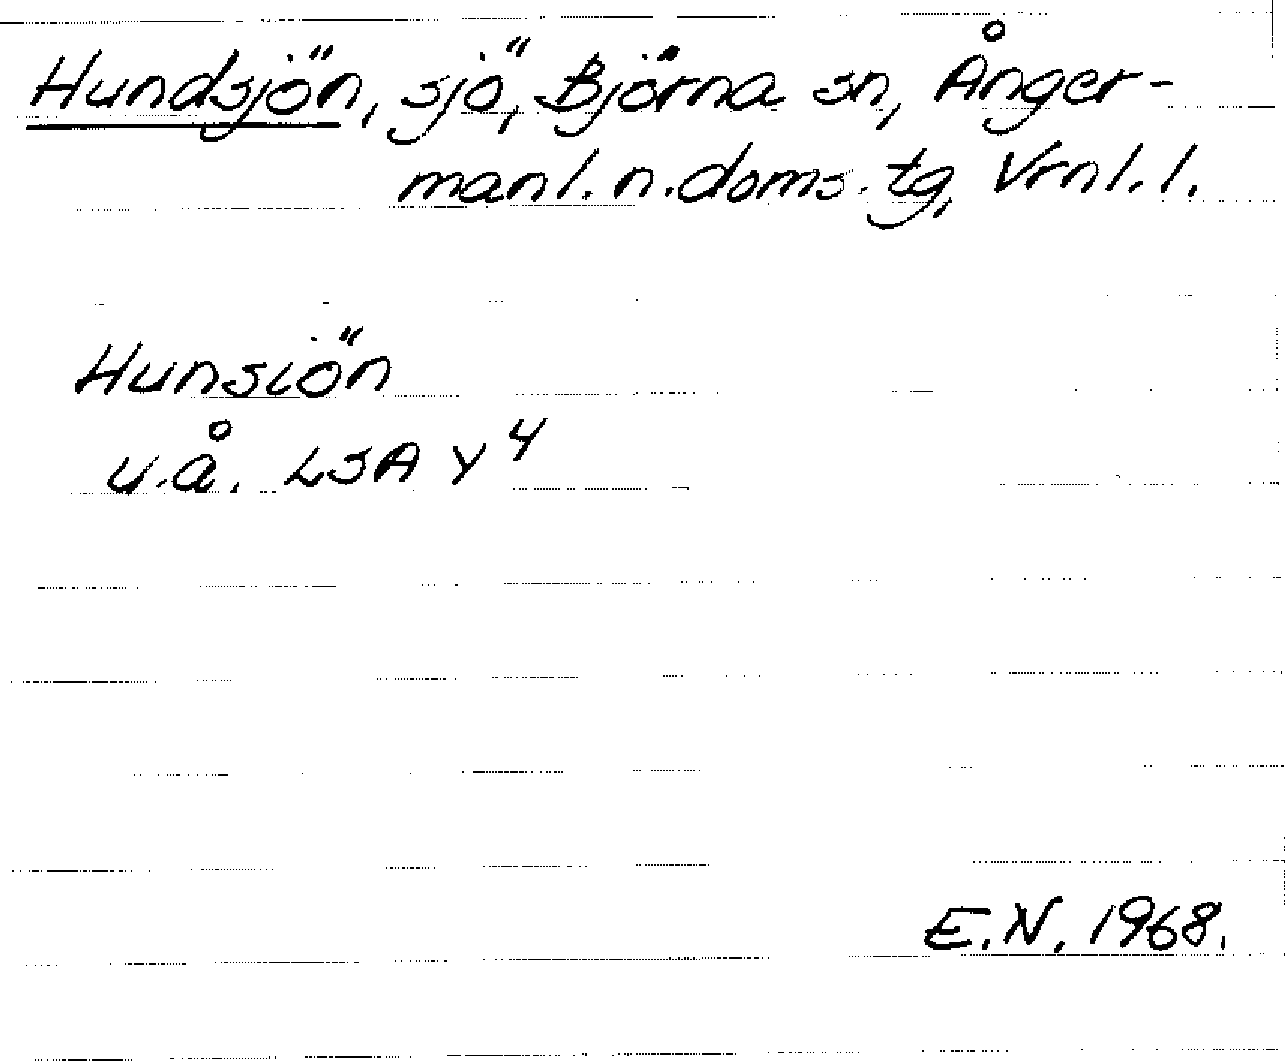 Hundsjön, sjö, Björna sn, Ånger-
manl. n. doms. tg, Vrnl. l.
Hunsiön
u.å. LSA Y 4
E.N. 1968.